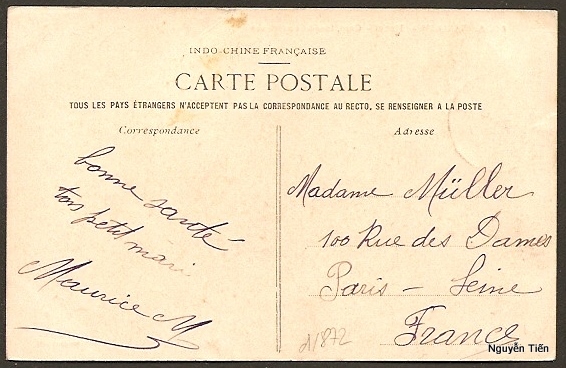 INDO-CHINE FRANÇAISE
CARTE POSTALE
TOUS LES PAYS ÉTRANGERS N'ACCEPTENT PAS LA CORRESPONDANCE AU RECTO, SE RENSEIGNER A LA POSTE
Correspondance
bonne santé
ton petit mari
Maurice M
Adresse
Madame Müller
100 Rue des Dames
Paris - Seine
France
Nguyễn Tiến